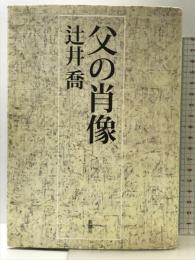 父の肖像
辻井喬